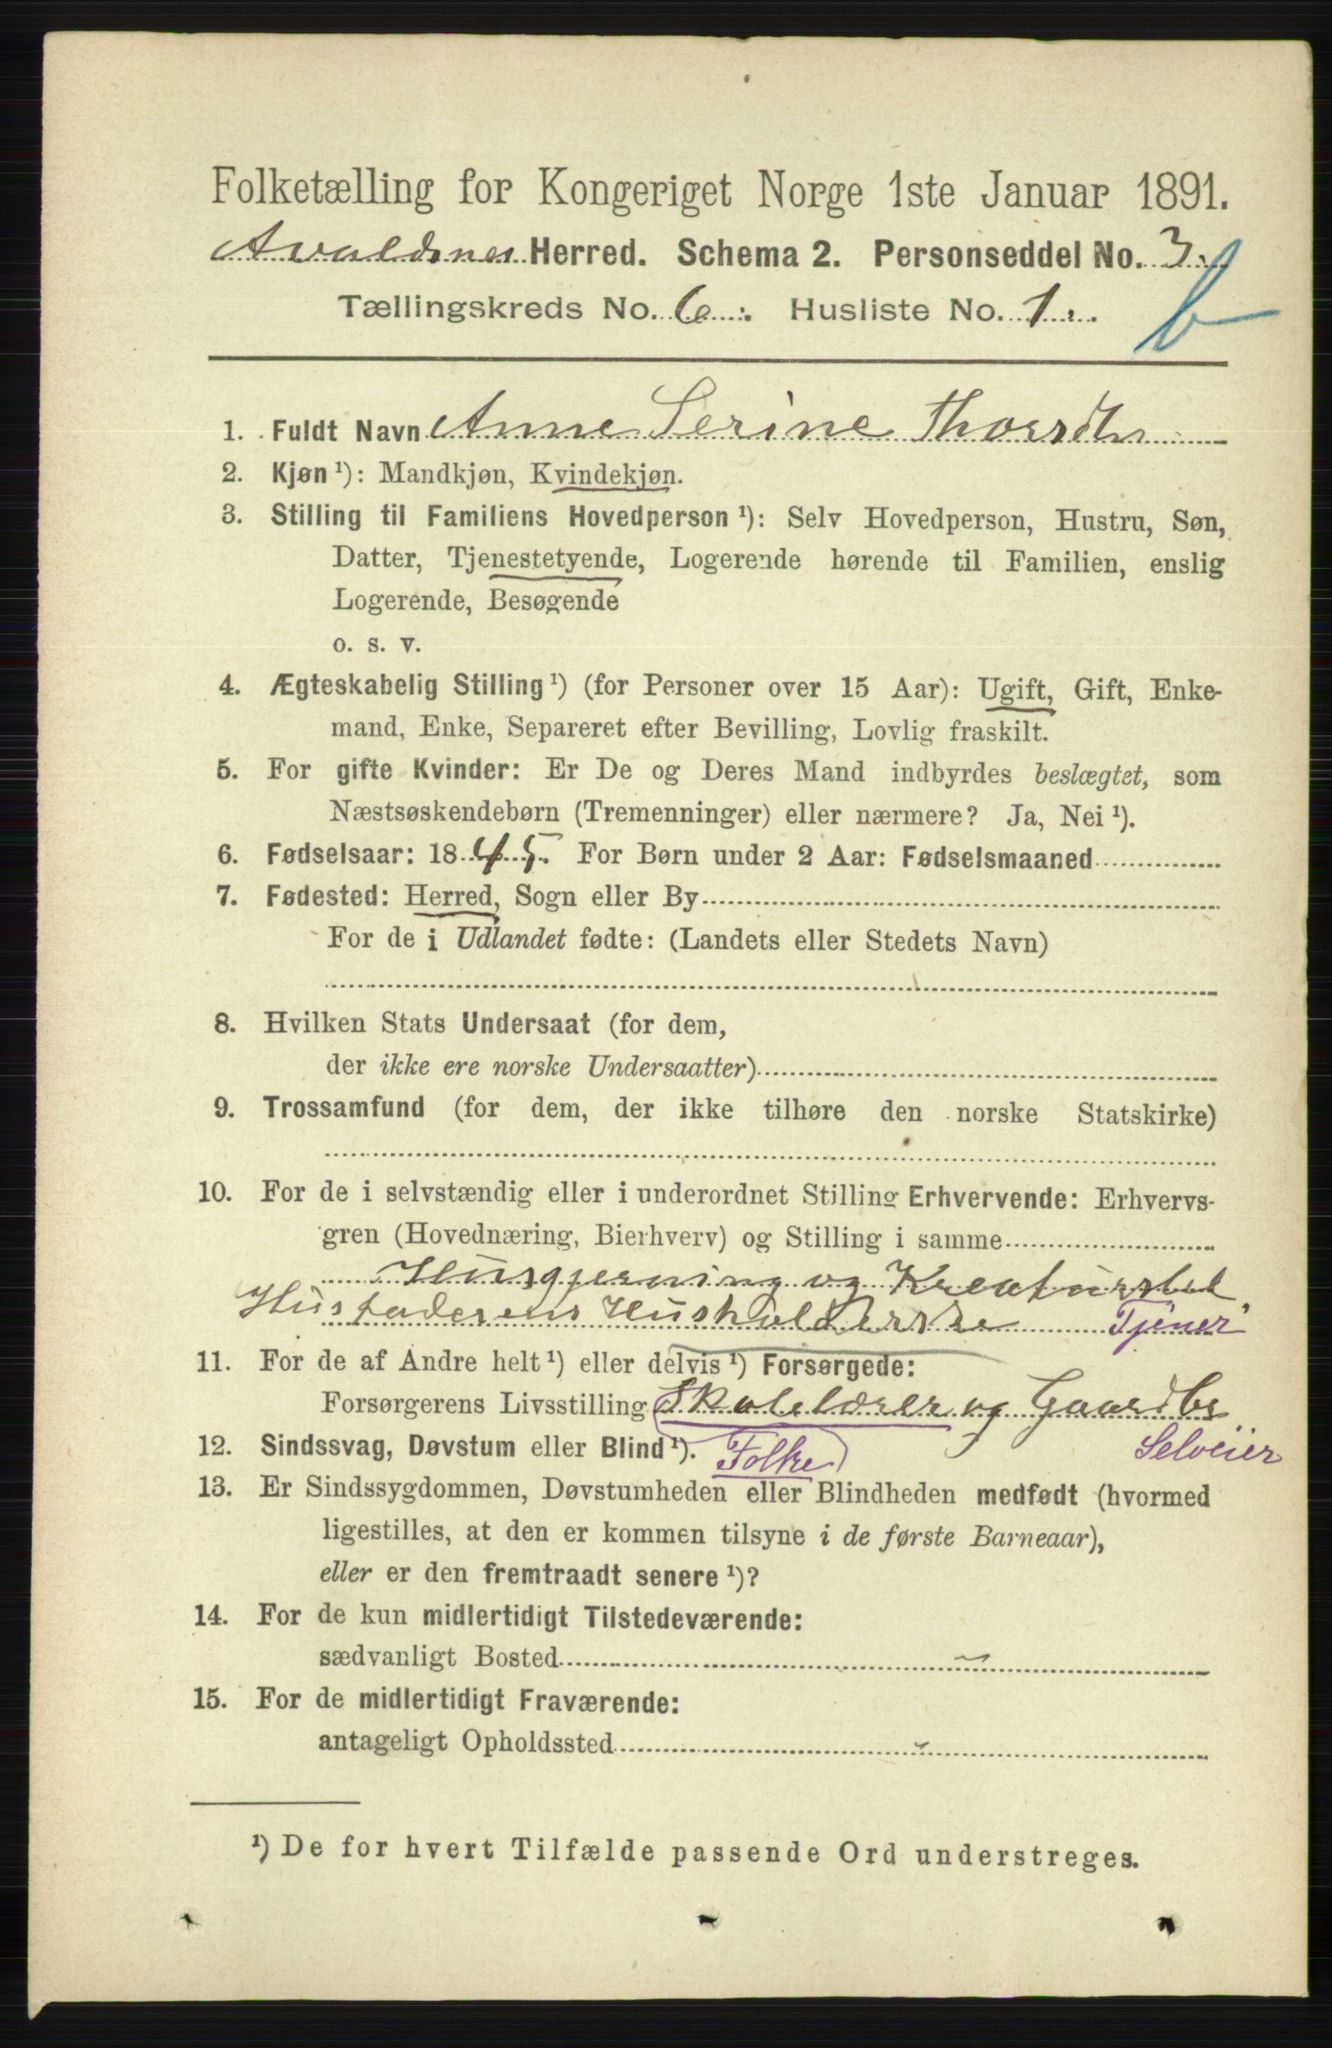 Folketælling for Kongeriget Norge 1ste Januar 1891.
Avaldsnes Herred. Schema 2. Personseddel No. 3.
Tællingskreds No. 6. Husliste No. 1. b
1. Fuldt Navn Anne Serine Thorsdtr
2. Kjøn ¹): Mandkjøn, Kvindekjøn.
3. Stilling til Familiens Hovedperson ¹): Selv Hovedperson, Hustru, Søn,
Datter, Tjenestetyende, Logerende hørende til Familien, enslig
Logerende, Besøgende
o. s. v.
4. Ægteskabelig Stilling ¹) (for Personer over 15 Aar): Ugift, Gift, Enke-
mand, Enke, Separeret efter Bevilling, Lovlig fraskilt.
5. For gifte Kvinder: Er De og Deres Mand indbyrdes beslægtet, som
Næstsøskendebørn (Tremenninger) eller nærmere? Ja, Nei ¹).
6. Fødselsaar: 1845. For Børn under 2 Aar: Fødselsmaaned
7. Fødested: Herred, Sogn eller By
For de i Udlandet fødte: (Landets eller Stedets Navn)
8. Hvilken Stats Undersaat (for dem,
der ikke ere norske Undersaatter)
9. Trossamfund (for dem, der ikke tilhøre den norske Statskirke)
10. For de i selvstændig eller i underordnet Stilling Erhvervende: Erhvervs-
gren (Hovednæring, Bierhverv) og Stilling i samme
Husgjerning og Kreaturstel
Husfaderens Husholderske Tjener
11. For de af Andre helt ¹) eller delvis ¹) Forsørgede:
Forsørgerens Livsstilling Skolelærer og Gaardbr
12. Sindssvag, Døvstum eller Blind ¹). Folke Selveier
13. Er Sindssygdommen, Døvstumheden eller Blindheden medfødt (hvormed
ligestilles, at den er kommen tilsyne i de første Barneaar),
eller er den fremtraadt senere ¹)?
14. For de kun midlertidigt Tilstedeværende:
sædvanligt Bosted
15. For de midlertidigt Fraværende:
antageligt Opholdssted
¹) De for hvert Tilfælde passende Ord understreges.